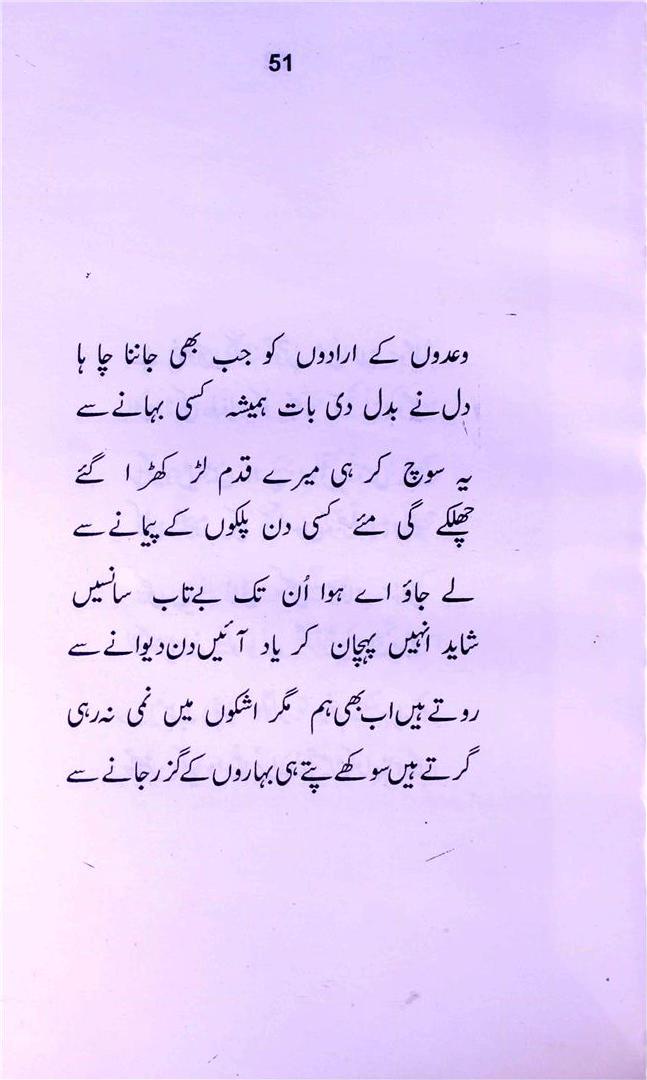 51
وعدوں کے ارادوں کو جب بھی جاننا چاہا
دل نے بدل دی بات ہمیشہ کسی بہانے سے
یہ سوچ کر ہی میرے قدم لڑکھڑا گئے
چھلکے گی مئے کسی دن پلکوں کے پیمانے سے
لے جاؤ اے ہوا اُن تک بے تاب سانسیں
شاید انہیں پہچان کر یاد آئیں دن دیوانے سے
روتے ہیں اب بھی ہم مگر اشکوں میں نمی نہ رہی
گرتے ہیں سوکھے پتے ہی بہاروں کے گزر جانے سے